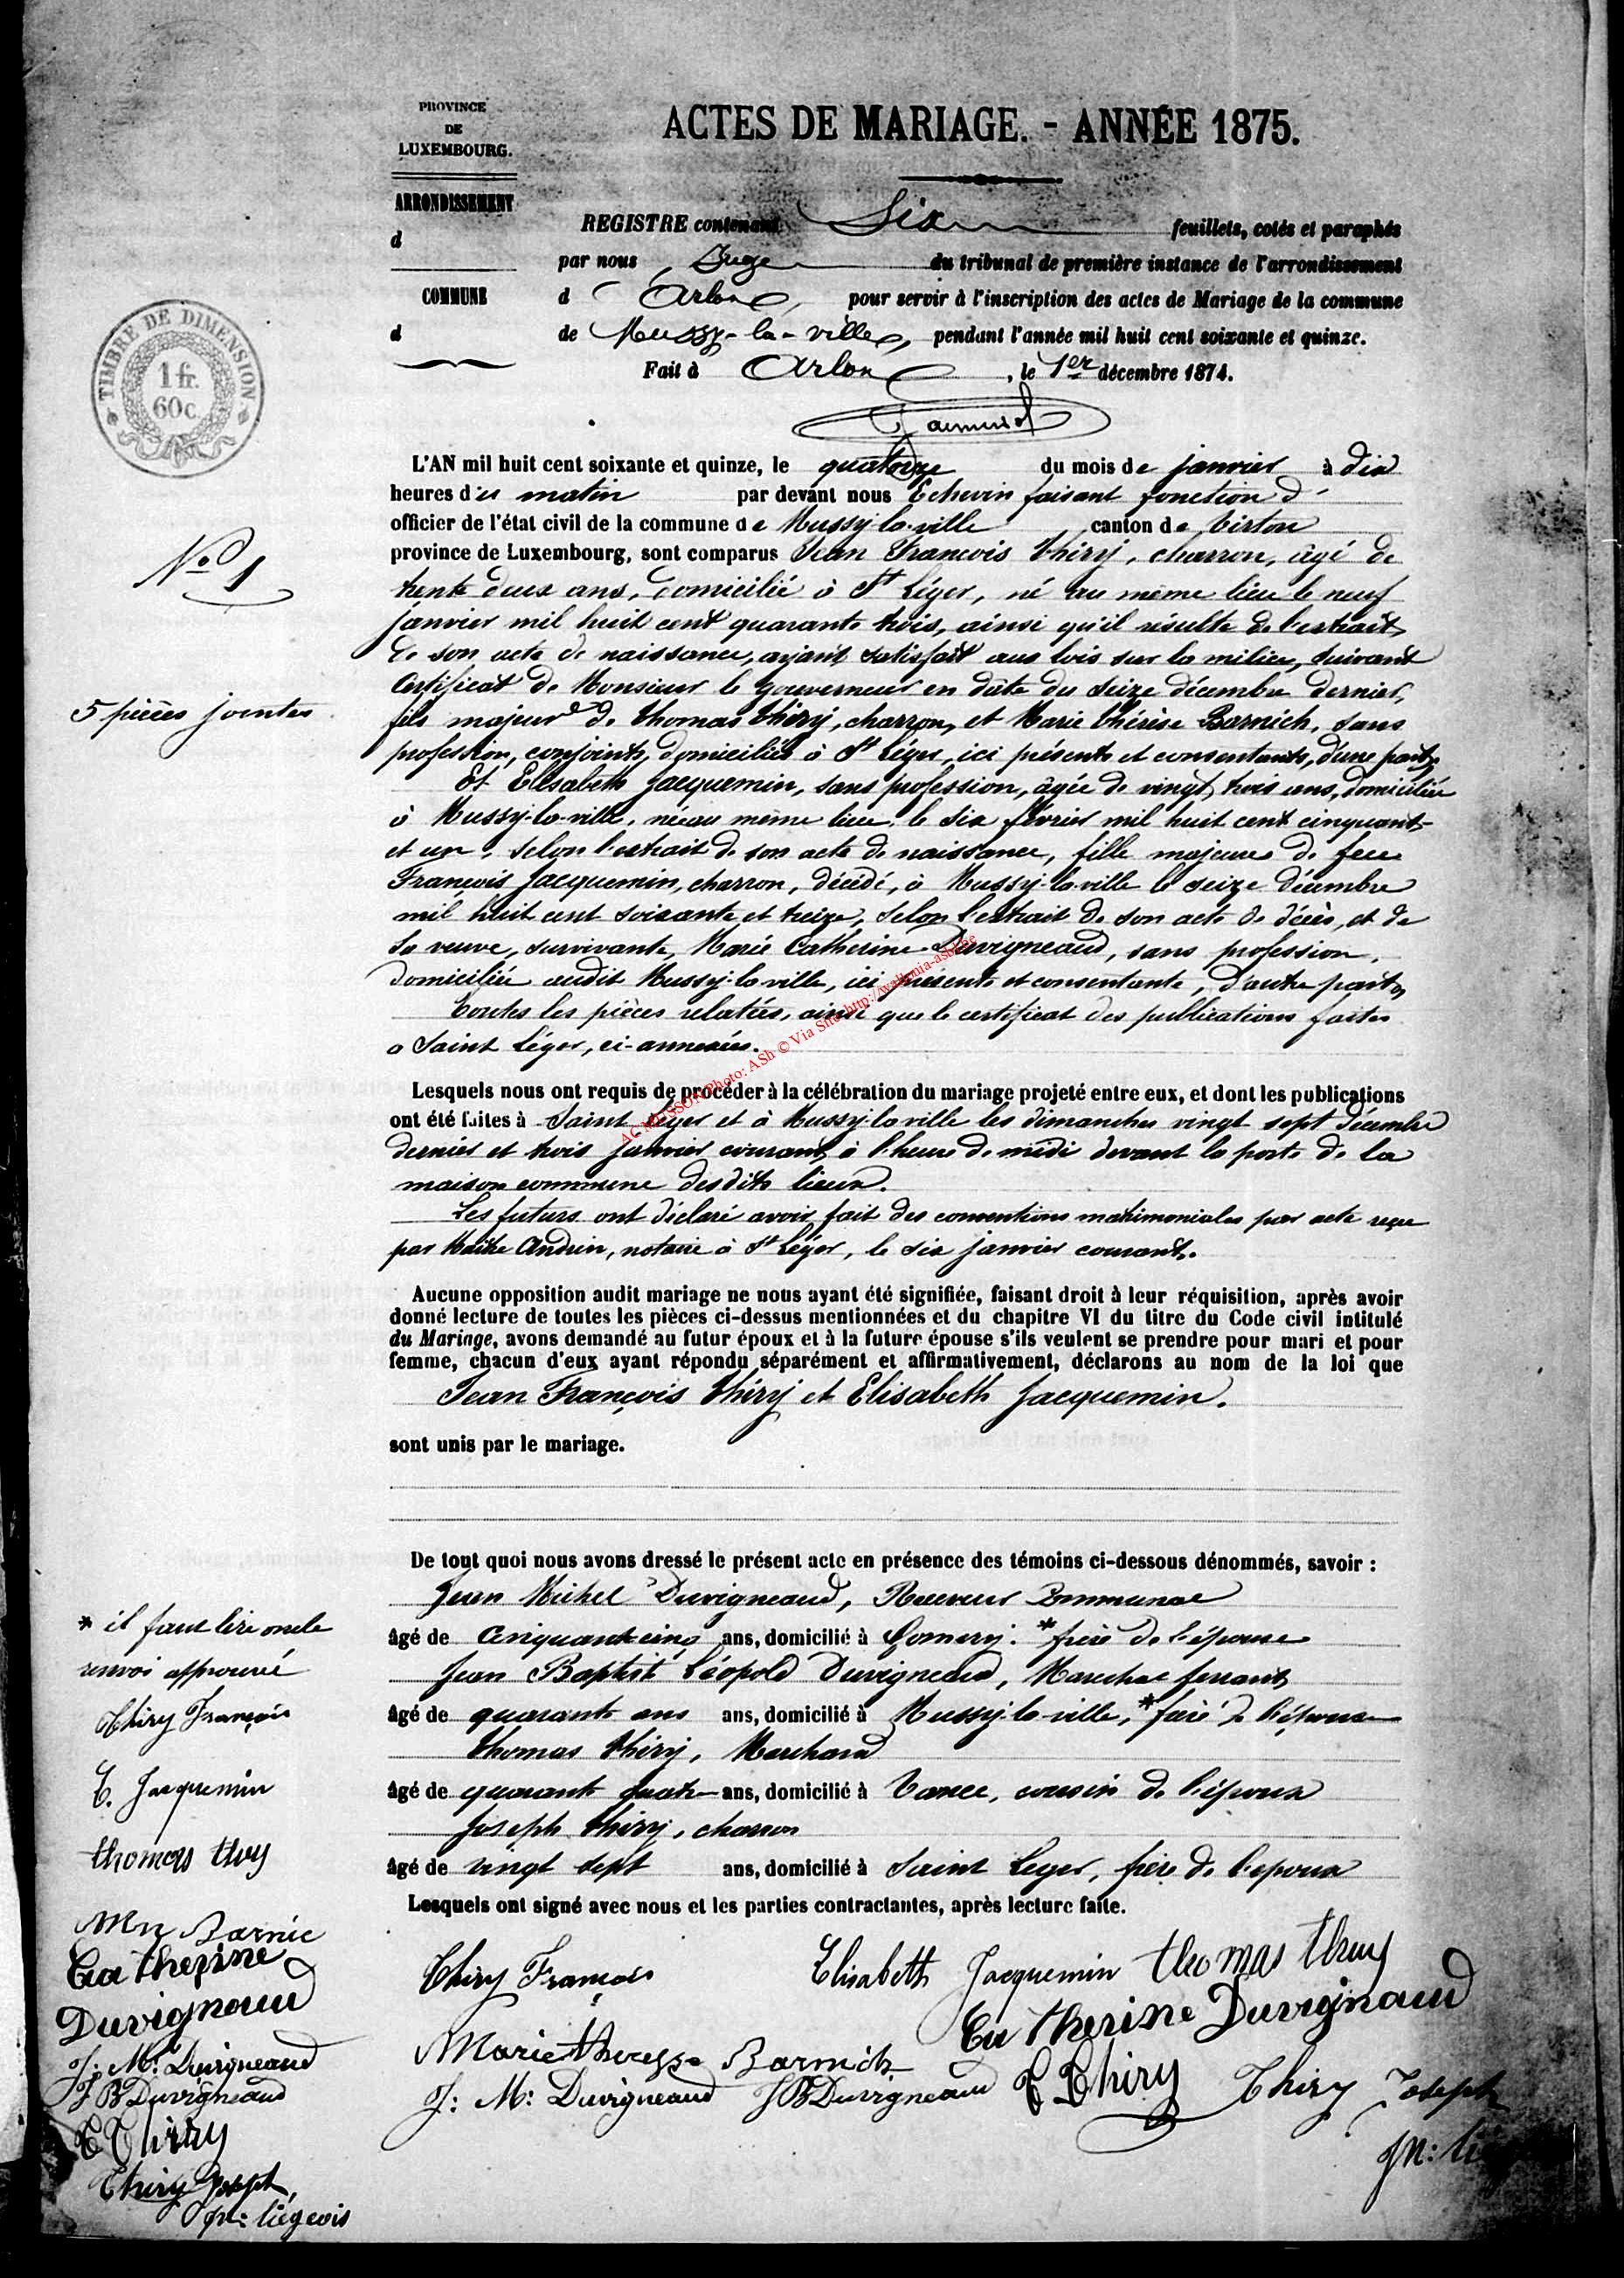 PROVINCE
DE
LUXEMBOURG.
ARRONDISSEMENT
d
COMMUNE
d
TIMBRE DE DIMENSION
1 fr.
60c.
ACTES DE MARIAGE. - ANNÉE 1875.
REGISTRE contenant Six feuillets, cotés et paraphés
par nous Juge du tribunal de première instance de l'arrondissement
d Arlon, pour servir à l'inscription des actes de Mariage de la commune
de Mussy-la-ville, pendant l'année mil huit cent soixante et quinze.
Fait à Arlon, le 1er décembre 1874.
No 1
L'AN mil huit cent soixante et quinze, le quatorze du mois de janvier à dix
heures du matin par devant nous Echevin faisant fonction d'
officier de l'état civil de la commune de Mussy-la-ville canton de Virton
province de Luxembourg, sont comparus Jean François Thiry, charron, âgé de
trente deux ans, domicilié à St Léger, né au même lieu le neuf
janvier mil huit cent quarante trois, ainsi qu'il résulte de l'extrait
de son acte de naissance, ayant satisfait aux lois sur la milice, suivant
Certificat de Monsieur le Gouverneur en date du seize décembre dernier,
5 pièces jointes
fils majeur de Thomas Thiry, charron, et Marie Thérèse Barnich, sans
profession, conjoints, domiciliés à St Léger, ici présents et consentants, d'une part,
Et Elisabeth Jacquemin, sans profession, âgée de vingt trois ans, domiciliée
à Mussy-la-ville, née au même lieu, le six février mil huit cent cinquante
et un, selon l'extrait de son acte de naissance, fille majeure de feu
François Jacquemin, charron, décédé, à Mussy-la-ville le seize décembre
mil huit cent soixante et treize, selon l'extrait de son acte de décès, et de
Sa veuve, survivante, Marie Catherine Duvigneaud, sans profession,
domiciliée audit Mussy-la-ville, ici présente et consentante, d'autre part,
Toutes les pièces relatées, ainsi que le certificat des publications faites
a Saint Léger, ci-annexées.
AC MUSSON Photo: ASh © Via Site http://wallonia-asbl.be
Lesquels nous ont requis de procéder à la célébration du mariage projeté entre eux, et dont les publications
ont été faites à Saint Léger et à Mussy-la-ville les dimanches vingt sept décembre
dernier et trois janvier courant, à l'heure de midi devant la porte de la
maison commune desdits lieux.
Les futurs ont déclaré avoir fait des conventions matrimoniales par acte reçu
par Maître Andrin, notaire à St Léger, le six janvier courant.
Aucune opposition audit mariage ne nous ayant été signifiée, faisant droit à leur réquisition, après avoir
donné lecture de toutes les pièces ci-dessus mentionnées et du chapitre VI du titre du Code civil intitulé
du Mariage, avons demandé au futur époux et à la future épouse s'ils veulent se prendre pour mari et pour
femme, chacun d'eux ayant répondu séparément et affirmativement, déclarons au nom de la loi que
Jean François Thiry et Elisabeth Jacquemin.
sont unis par le mariage.
De tout quoi nous avons dressé le présent acte en présence des témoins ci-dessous dénommés, savoir :
Jean Michel Duvigneaud, Receveur Communal
âgé de Cinquante cinq ans, domicilié à Gomery. * frère de l'épouse
Jean Baptiste Léopold Duvigneaud, Marechal ferrant
âgé de quarante ans ans, domicilié à Mussy-la-ville, * frère de l'épouse
Thomas Thiry, Marchand
âgé de quarante quatre ans, domicilié à Vance, cousin de l'époux
Joseph Thiry, charron
âgé de vingt sept ans, domicilié à Saint Leger, frère de l'epoux
Lesquels ont signé avec nous et les parties contractantes, après lecture faite.
* il faut lire oncle
renvoi approuvé
Thiry François
E. Jacquemin
thomas thiry
Barnic
Catherine
Duvignaud
J: M: Duvigneaud
J B Duvigneaud
T Thiry
Thiry Joseph,
liégeois
Thiry François
Elisabeth Jacquemin thomas thiry
Catherine Duvignaud
Marie theresse Barnich
J: M: Duvigneaud J B Duvigneaud T Thiry Thiry Joseph